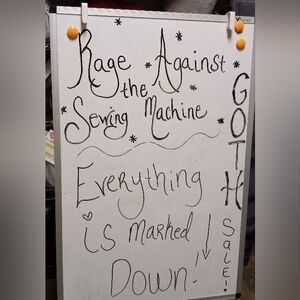 Rage Against
the
Sewing Machine
Everything
is marked
Down!
GOTH
SALE!